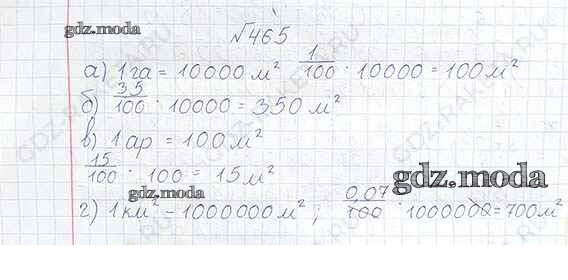 №465
gdz.moda
а) 1га = 10000 м² 1/100 · 10000 = 100 м²
б) 3,5/100 · 10000 = 350 м²
в) 1 ар = 100 м²
15/100 · 100 = 15 м²
gdz.moda
gdz.moda
г) 1 км² = 1000000 м² ; 0,07/100 · 1000000 = 700 м²